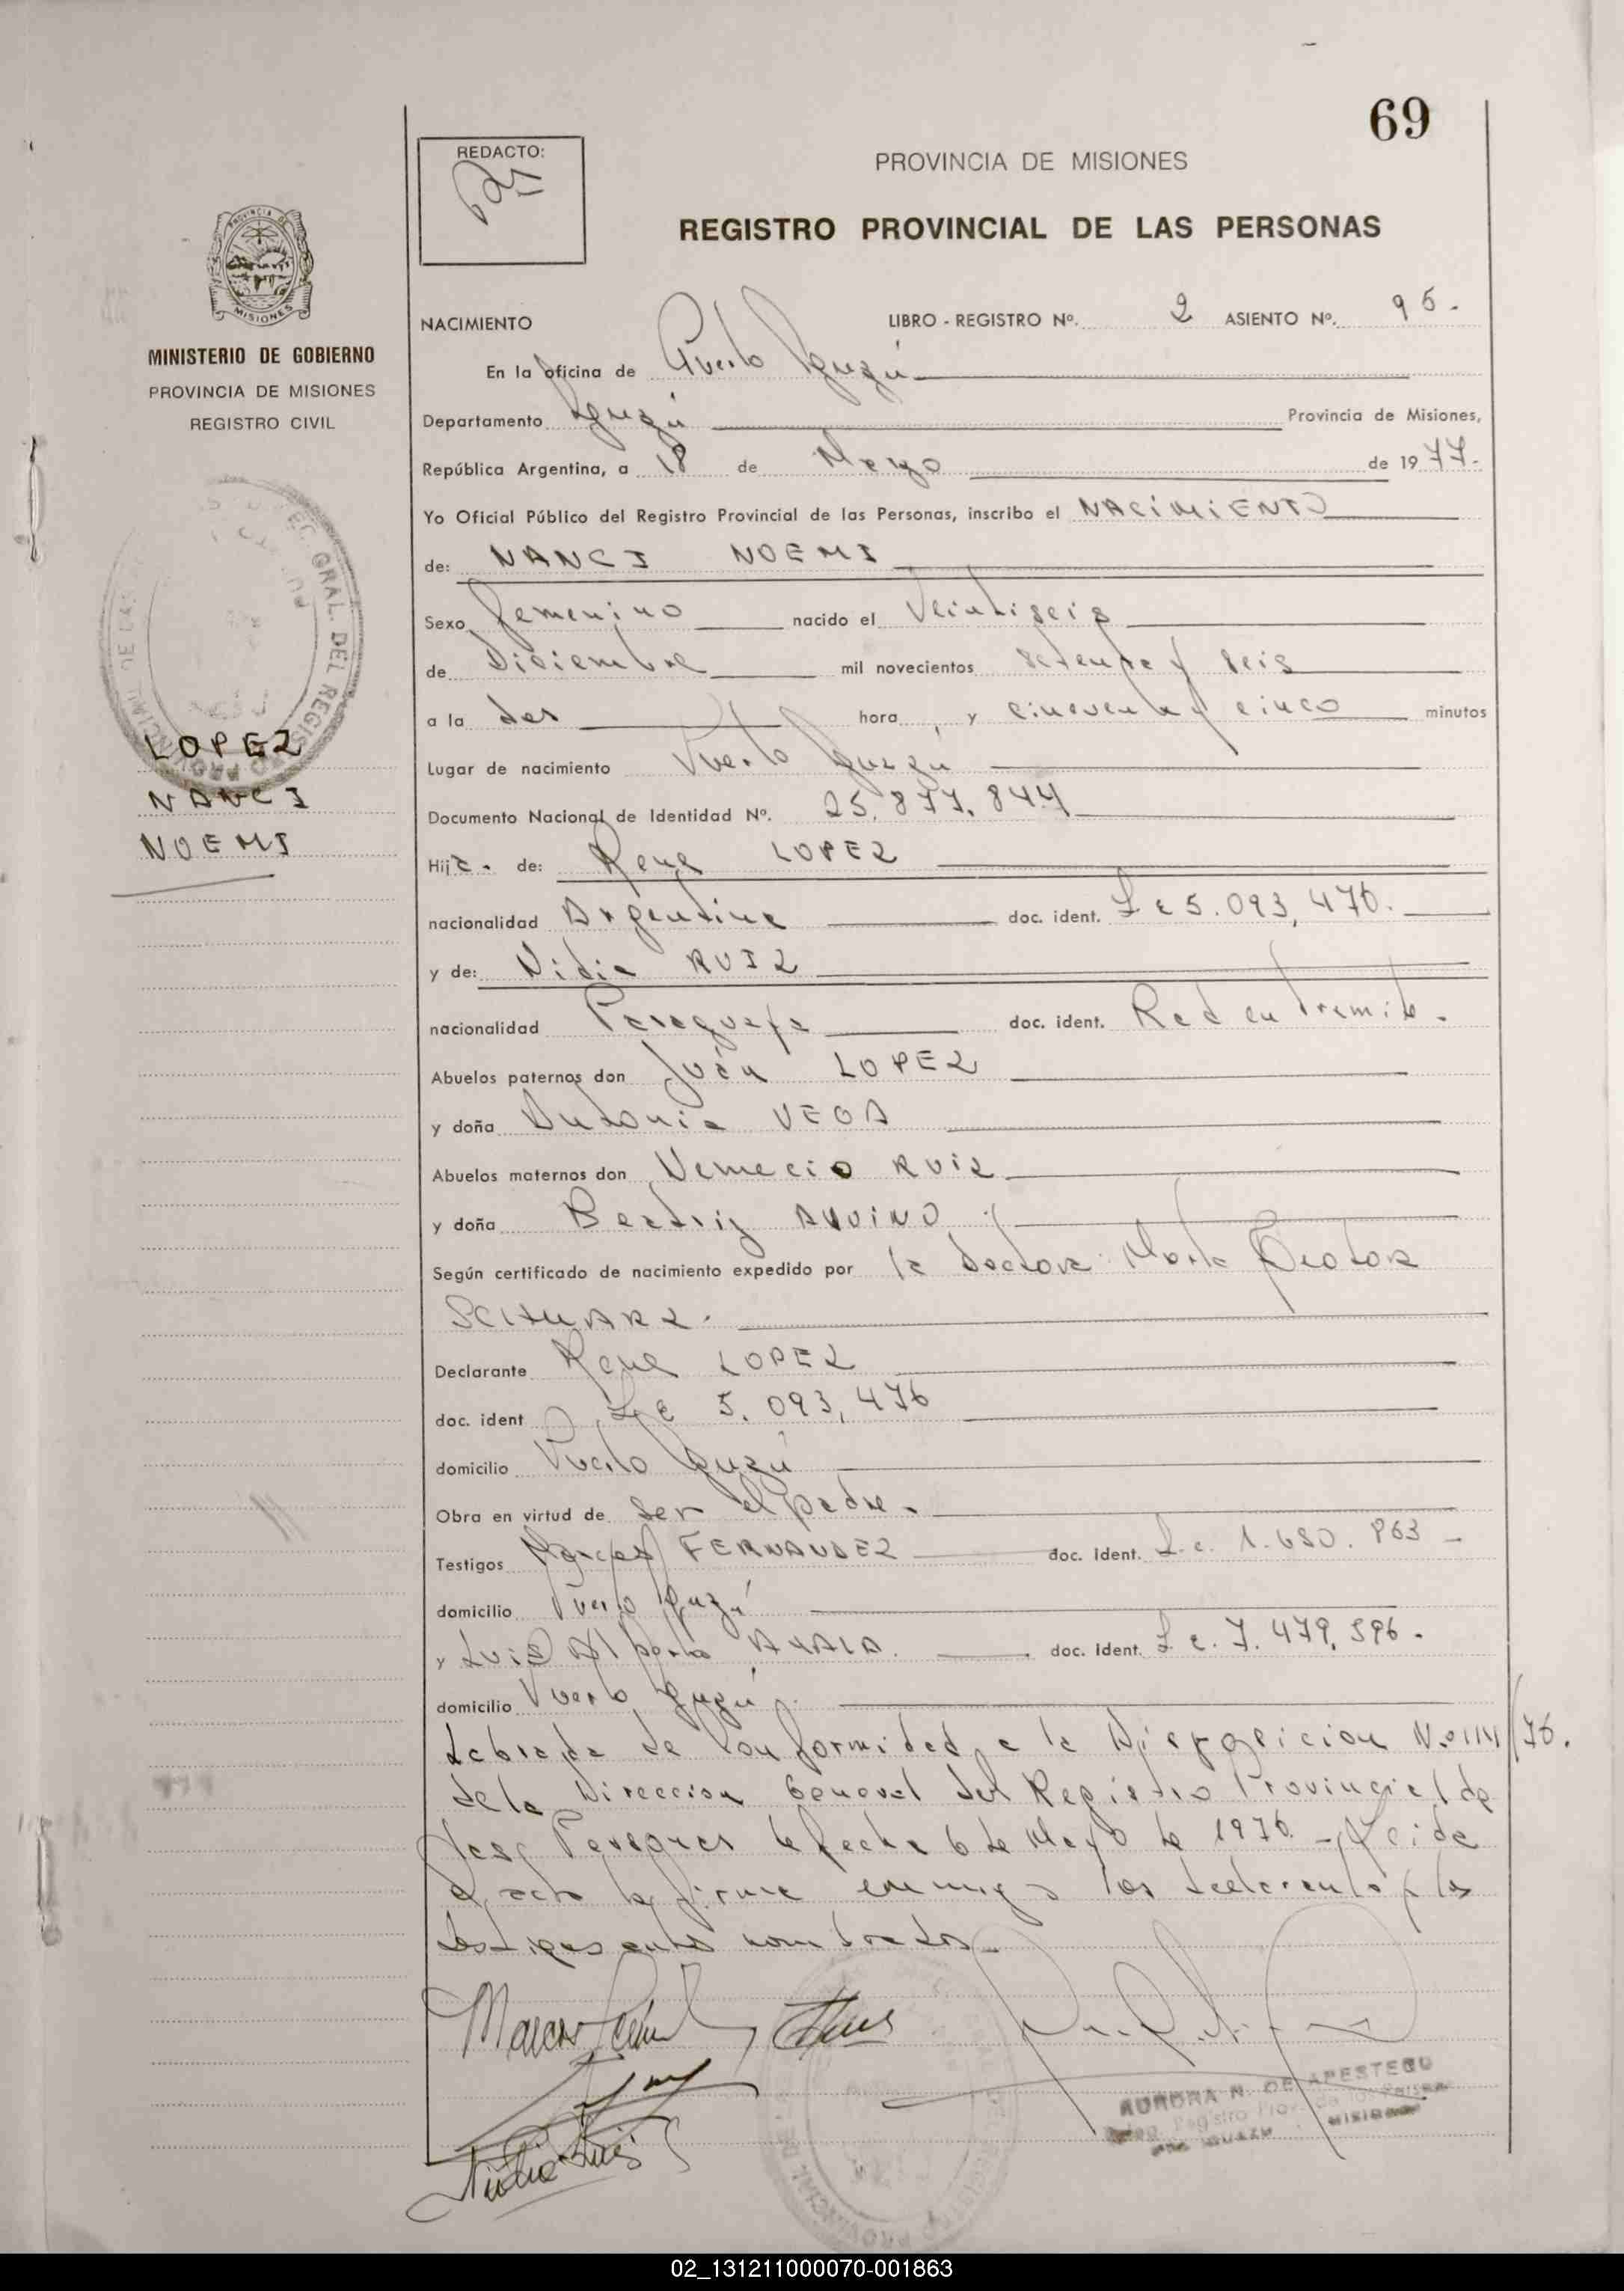 69
REDACTO:
PROVINCIA DE MISIONES
REGISTRO PROVINCIAL DE LAS PERSONAS
MINISTERIO DE GOBIERNO
PROVINCIA DE MISIONES
REGISTRO CIVIL
LOPEZ
NANCI
NOEMI
NACIMIENTO LIBRO - REGISTRO Nº. 2 ASIENTO Nº. 95.
En la oficina de Puerto Iguazú
Departamento Iguazú Provincia de Misiones,
República Argentina, a 18 de Mayo de 1977.
Yo Oficial Público del Registro Provincial de las Personas, inscribo el NACIMIENTO
de: NANCI NOEMI
Sexo femenino nacido el Veintiseis
de Diciembre mil novecientos setenta y seis
a la dos hora y cincuenta y cinco minutos
Lugar de nacimiento Puerto Iguazú
Documento Nacional de Identidad Nº. 25.877.844
Hija. de: Rene LOPEZ
nacionalidad Argentina doc. ident. L e 5.093,476.
y de: Nidia RUIZ
nacionalidad Paraguaya doc. ident. Rad en tramite.
Abuelos paternos don Juan LOPEZ
y doña Antonia VEGA
Abuelos maternos don Nemecio RUIZ
y doña Beatriz AQUINO
Según certificado de nacimiento expedido por la Doctora Marta Teodora
SCHWARZ.
Declarante Rene LOPEZ
doc. ident L e 5.093,476
domicilio Puerto Iguazú
Obra en virtud de ser el padre.
Testigos Marcos FERNANDEZ doc. ident. L.e. 1.680.863
domicilio Puerto Iguazú
y Luis Alberto AYALA. doc. ident. L e. 7.479,596.
domicilio Puerto Iguazú.
Labrada de Conformidad a la Disposicion Nº 114/76.
de la Direccion General del Registro Provincial de
las Personas de fecha 6 de Mayo de 1976. Leida
el acta la firma conmigo los declarante y los
testigos antes nombrados
Nidia Ruiz
AURORA N. DE APESTEGU
Registro Prov.
MISIONES
02_131211000070-001863